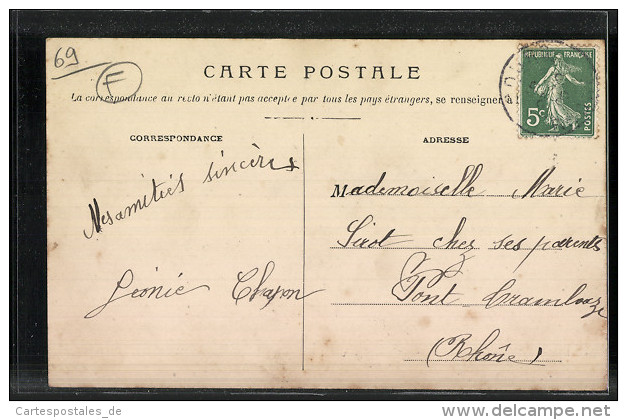 69
F
CARTE POSTALE
La correspondance au recto n'étant pas acceptée par tous les pays étrangers, se renseigner
REPUBLIQUE FRANÇAISE
5c
POSTES
CORRESPONDANCE
Mes amitiés sincères
Léonie Chapon
ADRESSE
Mademoiselle Marie
Sirot chez ses parents
Pont Trambouze
(Rhône)
Cartespostales_de
www.delcampe.net